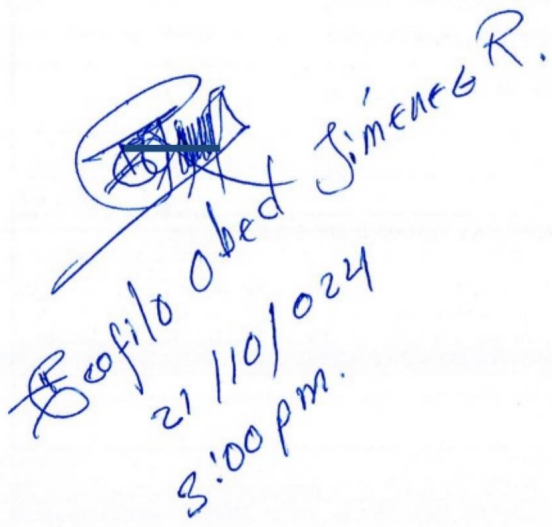 Teofilo Obed Jiménez R.
21/10/024
3:00 pm.